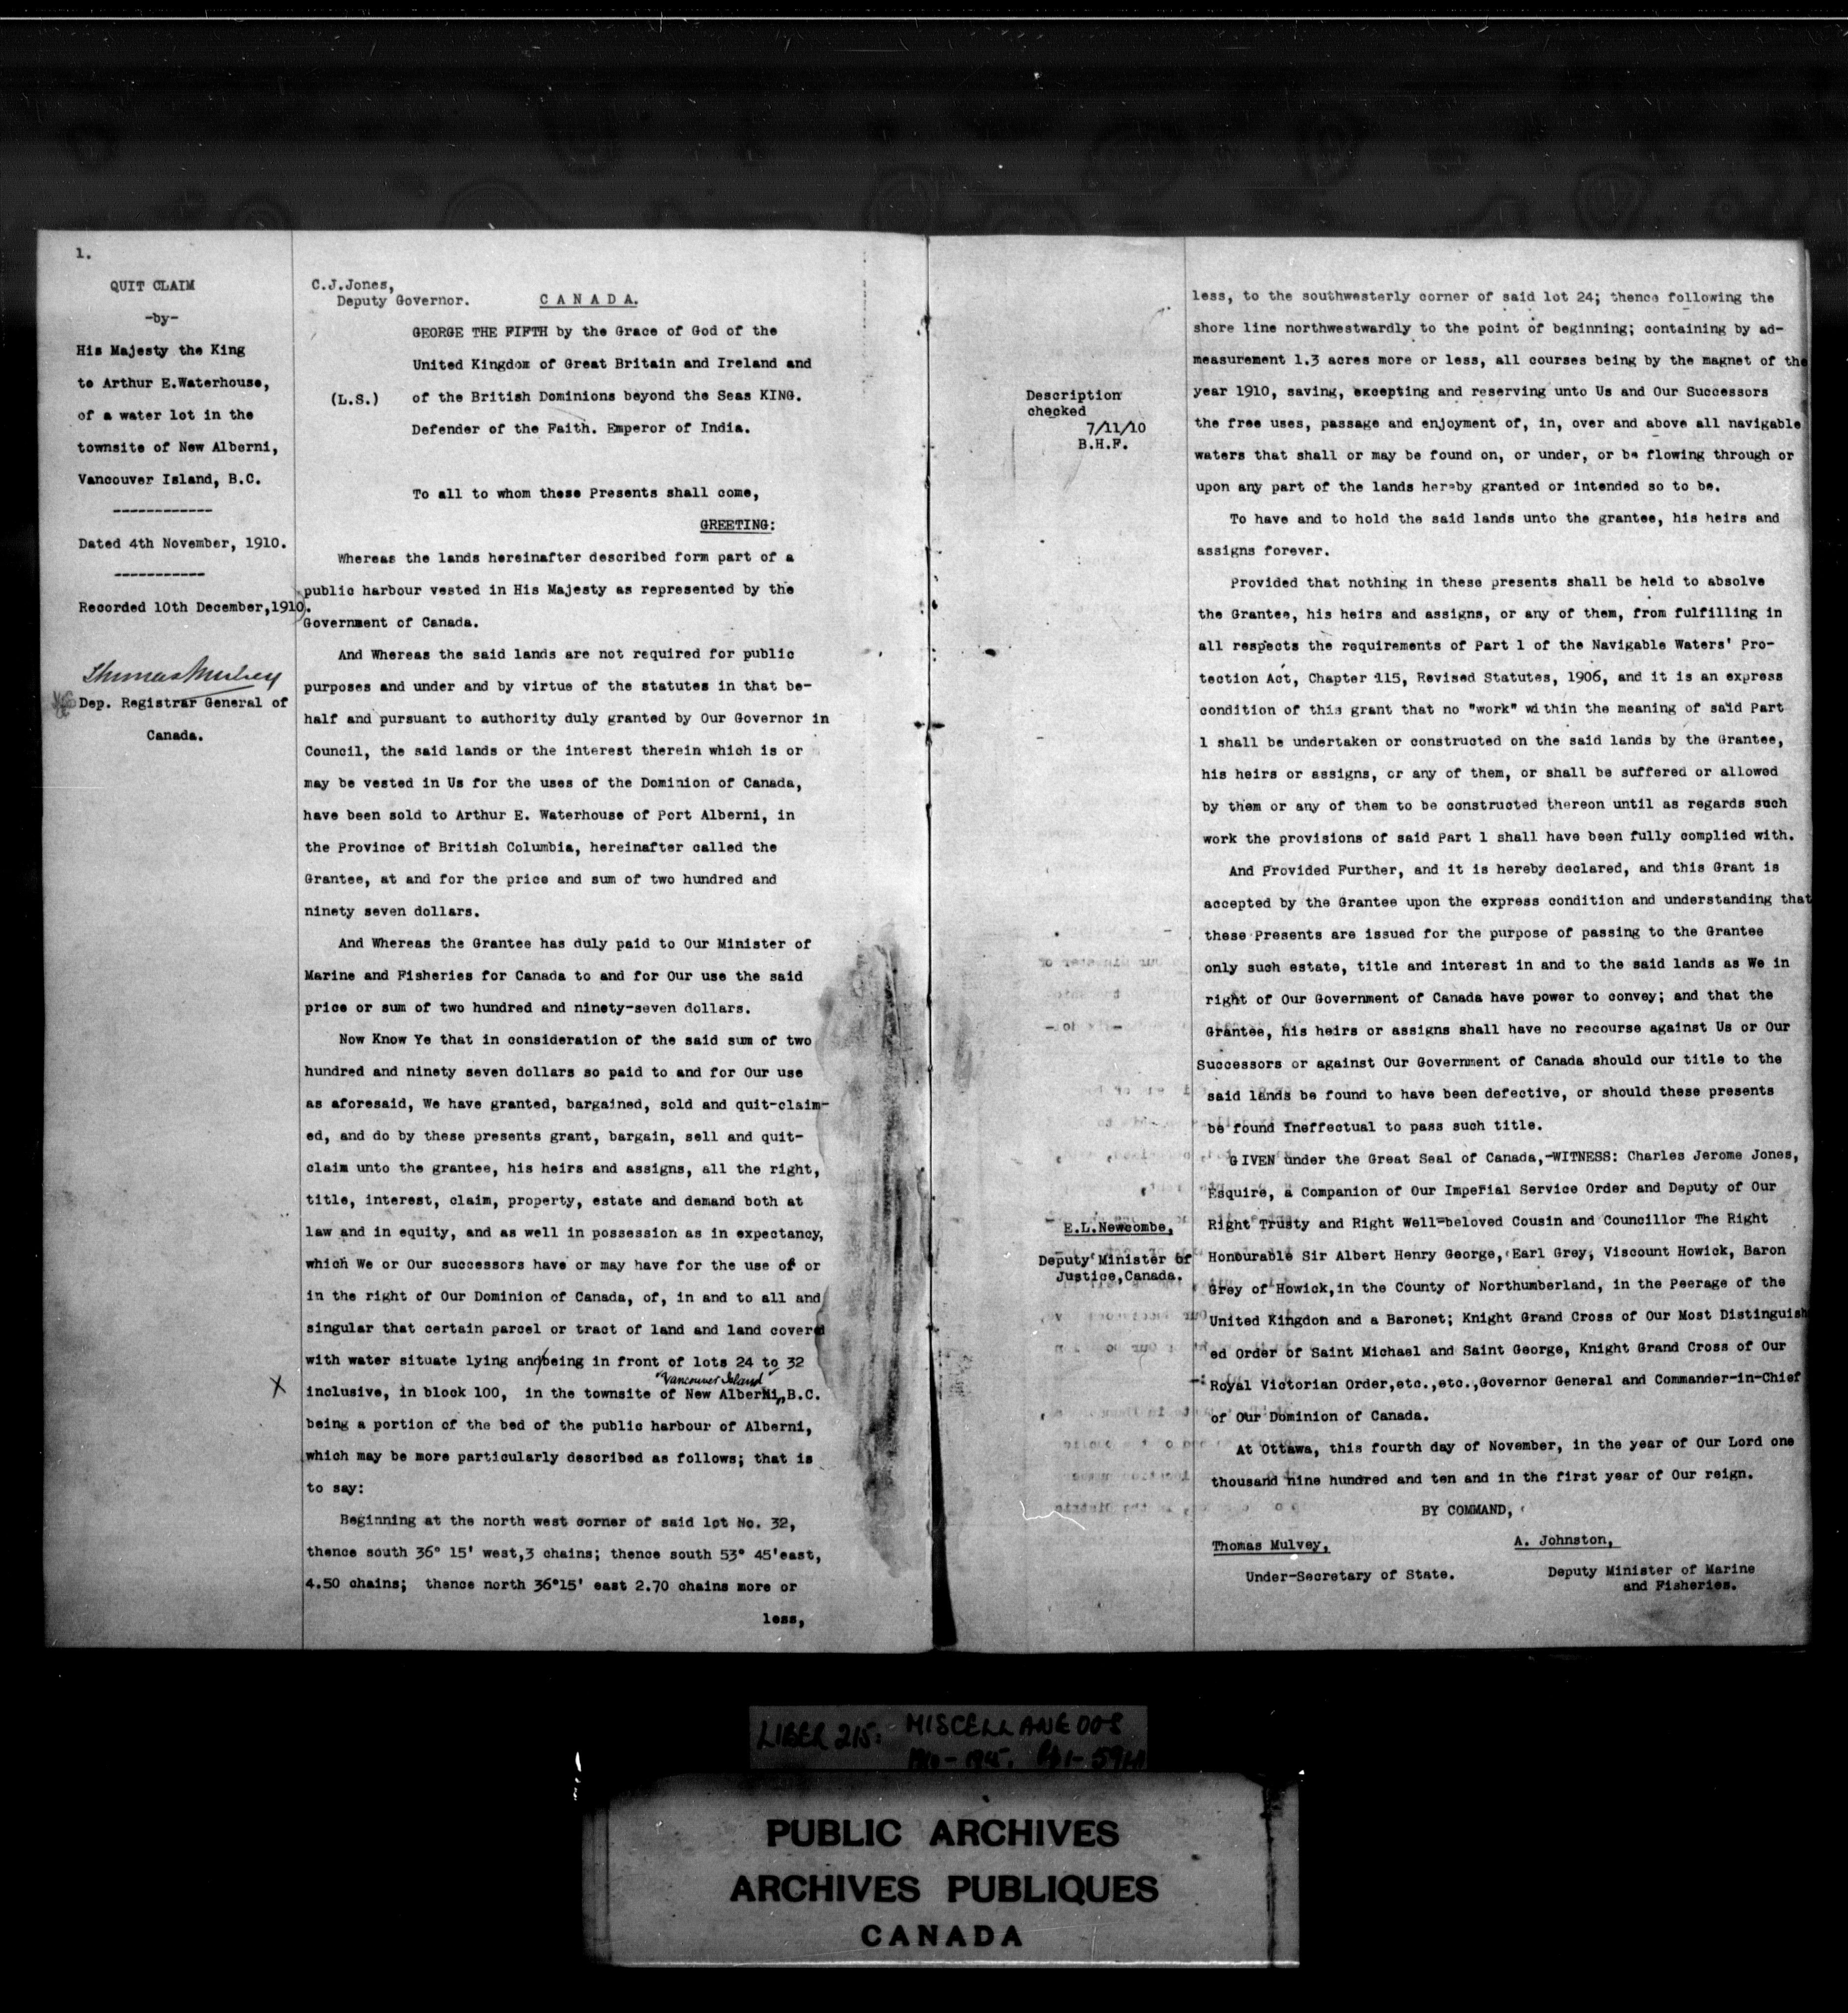 1.
QUIT CLAIM
-by-
His Majesty the King
to Arthur E.Waterhouse,
of a water lot in the
townsite of New Alberni,
Vancouver Island, B.C.
------------
Dated 4th November, 1910.
-----------
Recorded 10th December,1910.
Thomas Mulvey
Dep. Registrar General of
Canada.
C.J.Jones,
Deputy Governor. C A N A D A.
GEORGE THE FIFTH by the Grace of God of the
United Kingdom of Great Britain and Ireland and
(L.S.) of the British Dominions beyond the Seas KING.
Defender of the Faith. Emperor of India.
To all to whom these Presents shall come,
GREETING:
Whereas the lands hereinafter described form part of a
public harbour vested in His Majesty as represented by the
Government of Canada.
And Whereas the said lands are not required for public
purposes and under and by virtue of the statutes in that be-
half and pursuant to authority duly granted by Our Governor in
Council, the said lands or the interest therein which is or
may be vested in Us for the uses of the Dominion of Canada,
have been sold to Arthur E. Waterhouse of Port Alberni, in
the Province of British Columbia, hereinafter called the
Grantee, at and for the price and sum of two hundred and
ninety seven dollars.
And Whereas the Grantee has duly paid to Our Minister of
Marine and Fisheries for Canada to and for Our use the said
price or sum of two hundred and ninety-seven dollars.
Now Know Ye that in consideration of the said sum of two
hundred and ninety seven dollars so paid to and for Our use
as aforesaid, We have granted, bargained, sold and quit-claim-
ed, and do by these presents grant, bargain, sell and quit-
claim unto the grantee, his heirs and assigns, all the right,
title, interest, claim, property, estate and demand both at
law and in equity, and as well in possession as in expectancy,
which We or Our successors have or may have for the use of or
in the right of Our Dominion of Canada, of, in and to all and
singular that certain parcel or tract of land and land covered
with water situate lying and being in front of lots 24 to 32
Vancouver Island
X inclusive, in block 100, in the townsite of New Alberni, B.C.
being a portion of the bed of the public harbour of Alberni,
which may be more particularly described as follows; that is
to say:
Beginning at the north west corner of said lot No. 32,
thence south 36° 15' west,3 chains; thence south 53° 45'east,
4.50 chains; thence north 36°15' east 2.70 chains more or
less,
Description
checked
7/11/10
B.H.F.
E.L.Newcombe,
Deputy Minister of
Justice,Canada.
less, to the southwesterly corner of said lot 24; thence following the
shore line northwestwardly to the point of beginning; containing by ad-
measurement 1.3 acres more or less, all courses being by the magnet of the
year 1910, saving, excepting and reserving unto Us and Our Successors
the free uses, passage and enjoyment of, in, over and above all navigable
waters that shall or may be found on, or under, or be flowing through or
upon any part of the lands hereby granted or intended so to be.
To have and to hold the said lands unto the grantee, his heirs and
assigns forever.
Provided that nothing in these presents shall be held to absolve
the Grantee, his heirs and assigns, or any of them, from fulfilling in
all respects the requirements of Part 1 of the Navigable Waters' Pro-
tection Act, Chapter 115, Revised Statutes, 1906, and it is an express
condition of this grant that no "work" within the meaning of said Part
1 shall be undertaken or constructed on the said lands by the Grantee,
his heirs or assigns, or any of them, or shall be suffered or allowed
by them or any of them to be constructed thereon until as regards such
work the provisions of said Part 1 shall have been fully complied with.
And Provided Further, and it is hereby declared, and this Grant is
accepted by the Grantee upon the express condition and understanding that
these Presents are issued for the purpose of passing to the Grantee
only such estate, title and interest in and to the said lands as We in
right of Our Government of Canada have power to convey; and that the
Grantee, his heirs or assigns shall have no recourse against Us or Our
Successors or against Our Government of Canada should our title to the
said lands be found to have been defective, or should these presents
be found ineffectual to pass such title.
GIVEN under the Great Seal of Canada,-WITNESS: Charles Jerome Jones,
Esquire, a Companion of Our Imperial Service Order and Deputy of Our
Right Trusty and Right Well-beloved Cousin and Councillor The Right
Honourable Sir Albert Henry George, Earl Grey, Viscount Howick, Baron
Grey of Howick,in the County of Northumberland, in the Peerage of the
United Kingdon and a Baronet; Knight Grand Cross of Our Most Distinguish
ed Order of Saint Michael and Saint George, Knight Grand Cross of Our
Royal Victorian Order,etc.,etc.,Governor General and Commander-in-Chief
of Our Dominion of Canada.
At Ottawa, this fourth day of November, in the year of Our Lord one
thousand nine hundred and ten and in the first year of Our reign.
BY COMMAND,
Thomas Mulvey, A. Johnston,
Under-Secretary of State. Deputy Minister of Marine
and Fisheries.
LIBER 215: MISCELLANEOUS
PUBLIC ARCHIVES
ARCHIVES PUBLIQUES
CANADA